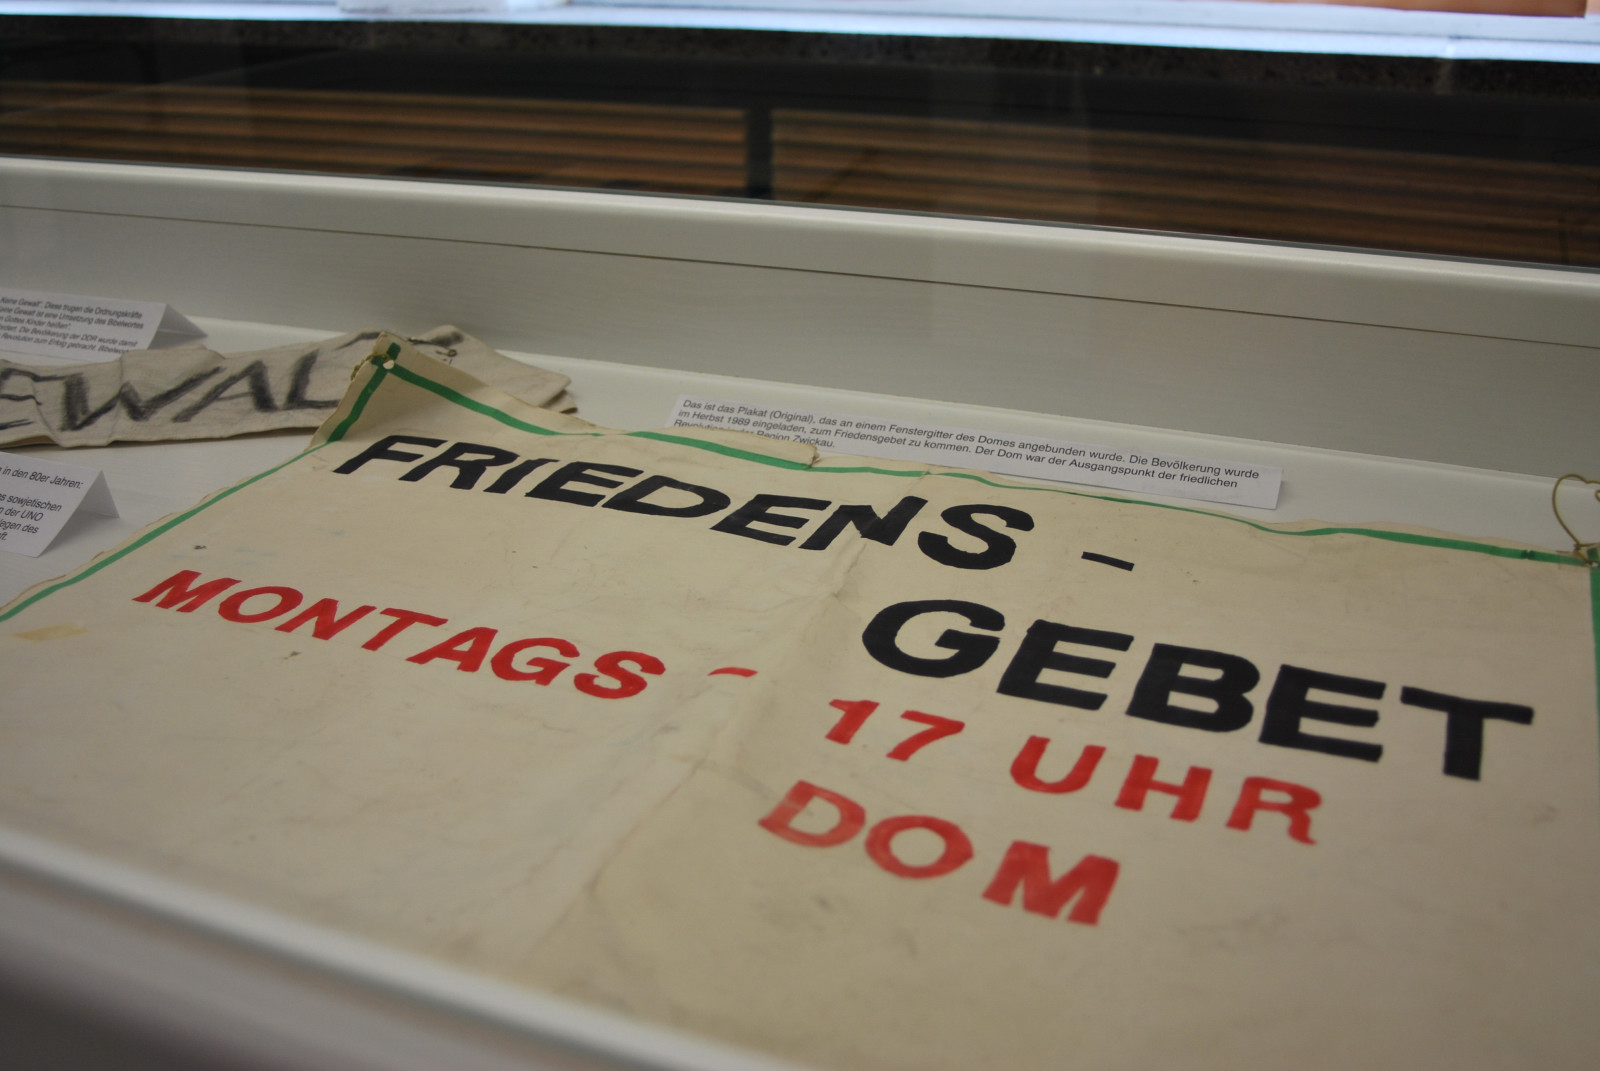 Keine Gewalt". Diese trugen die Ordnungskräfte
eine Gewalt ist eine Umsetzung des Bibelwortes
Gottes Kinder heißen"
Die Bevölkerung der DDR wurde damit
Revolution zum Erfolg gebracht.
EWALT
in den 80er Jahren:
sowjetischen
der UNO
des
Das ist das Plakat (Original), das an einem Fenstergitter des Domes angebunden wurde. Die Bevölkerung wurde
im Herbst 1989 eingeladen, zum Friedensgebet zu kommen. Der Dom war der Ausgangspunkt der friedlichen
Revolution in der Region Zwickau.
FRIEDENS -
GEBET
MONTAGS -
17 UHR
DOM